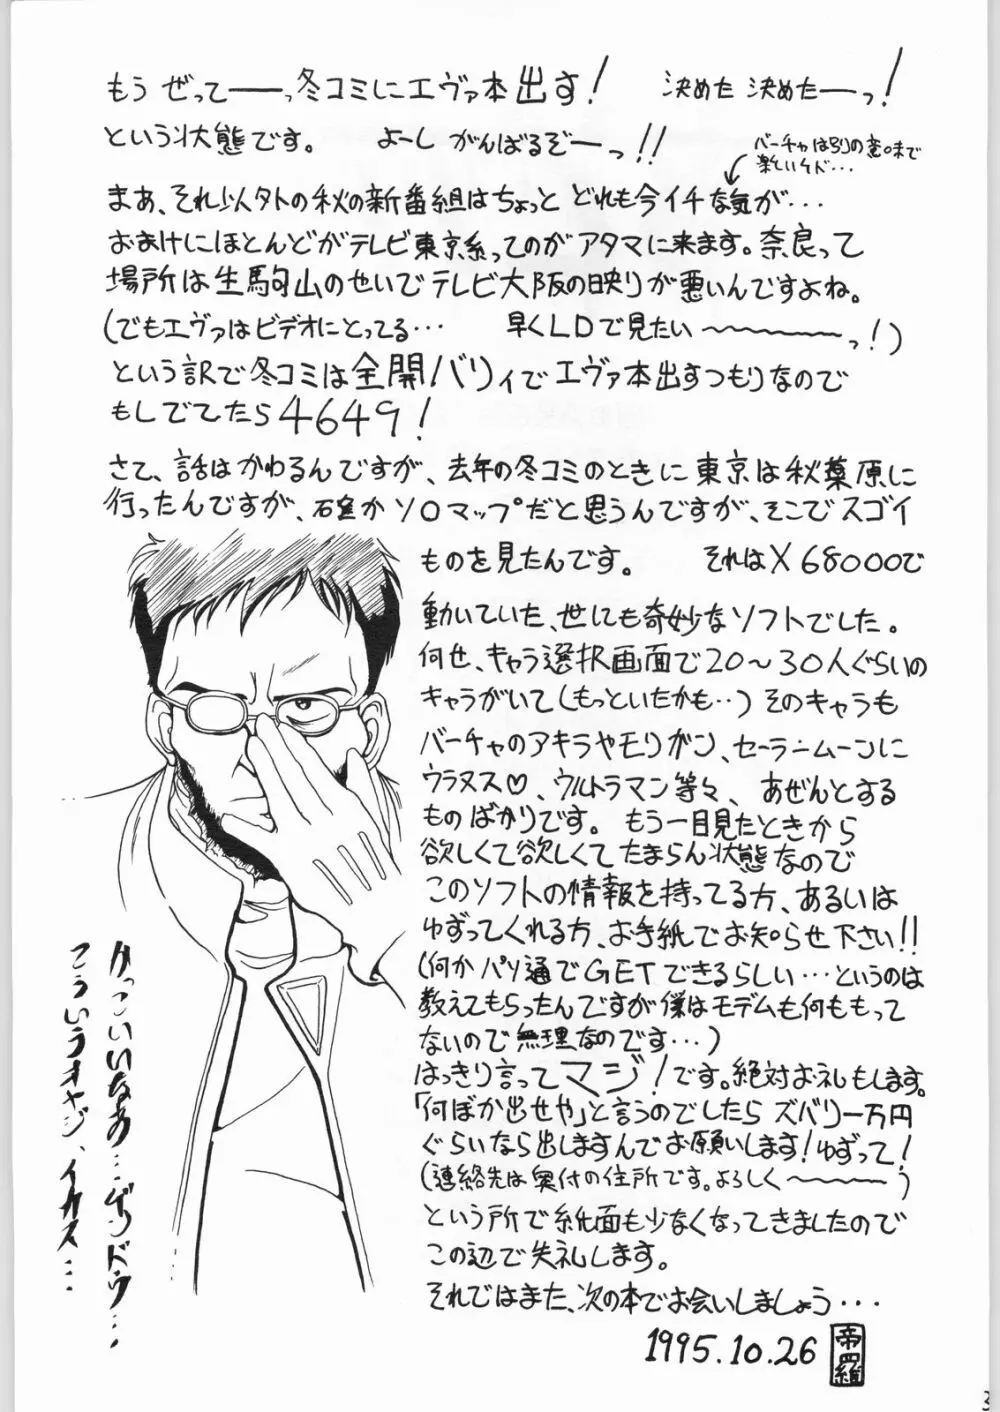 もう ぜってーーっ冬コミにエヴァ本出す！ 決めた 決めたーっ！
という状態です。 よーし がんばるぞーっ！！
バーチャは別の意味で
楽しいケド…
まあ、それ以外の秋の新番組はちょっと どれも今イチな気が…
おまけにほとんどがテレビ東京系ってのがアタマに来ます。奈良って
場所は生駒山のせいでテレビ大阪の映りが悪いんですよね。
(でもエヴァはビデオにとってる… 早くLDで見たい〜〜〜っ！)
という訳で冬コミは全開バリィでエヴァ本出すつもりなので
もしでてたら4649！
さて、話はかわるんですが、去年の冬コミのときに東京は秋葉原に
行ったんですが、確かソフマップだと思うんですが、そこでスゴイ
ものを見たんです。 それはX68000で
動いていた、世にも奇妙なソフトでした。
何せ、キャラ選択画面で20〜30人ぐらいの
キャラがいて(もっといたかも…)そのキャラも
バーチャのアキラやモリガン、セーラームーンに
ウラヌス♡、ウルトラマン等々、あぜんとする
ものばかりです。もう一目見たときから
欲しくて欲しくてたまらん状態なので
このソフトの情報を持ってる方、あるいは
ゆずってくれる方、お手紙でお知らせ下さい！！
(何かパソ通でGETできるらしい…というのは
教えてもらったんですが僕はモデムも何ももって
ないので無理なのです…)
はっきり言ってマジ！です。絶対お礼もします。
「何ぼか出せや」と言うのでしたら ズバリ一万円
ぐらいなら出しますんでお願いします！ゆずって！
(連絡先は奥付の住所です。よろしく〜〜〜)
という所で紙面も少なくなってきましたので
この辺で失礼します。
それではまた、次の本でお会いしましょう…
1995.10.26 帝羅
かっこいいなあ…ゲンドウ…
こういうオヤジ、イカス…
3